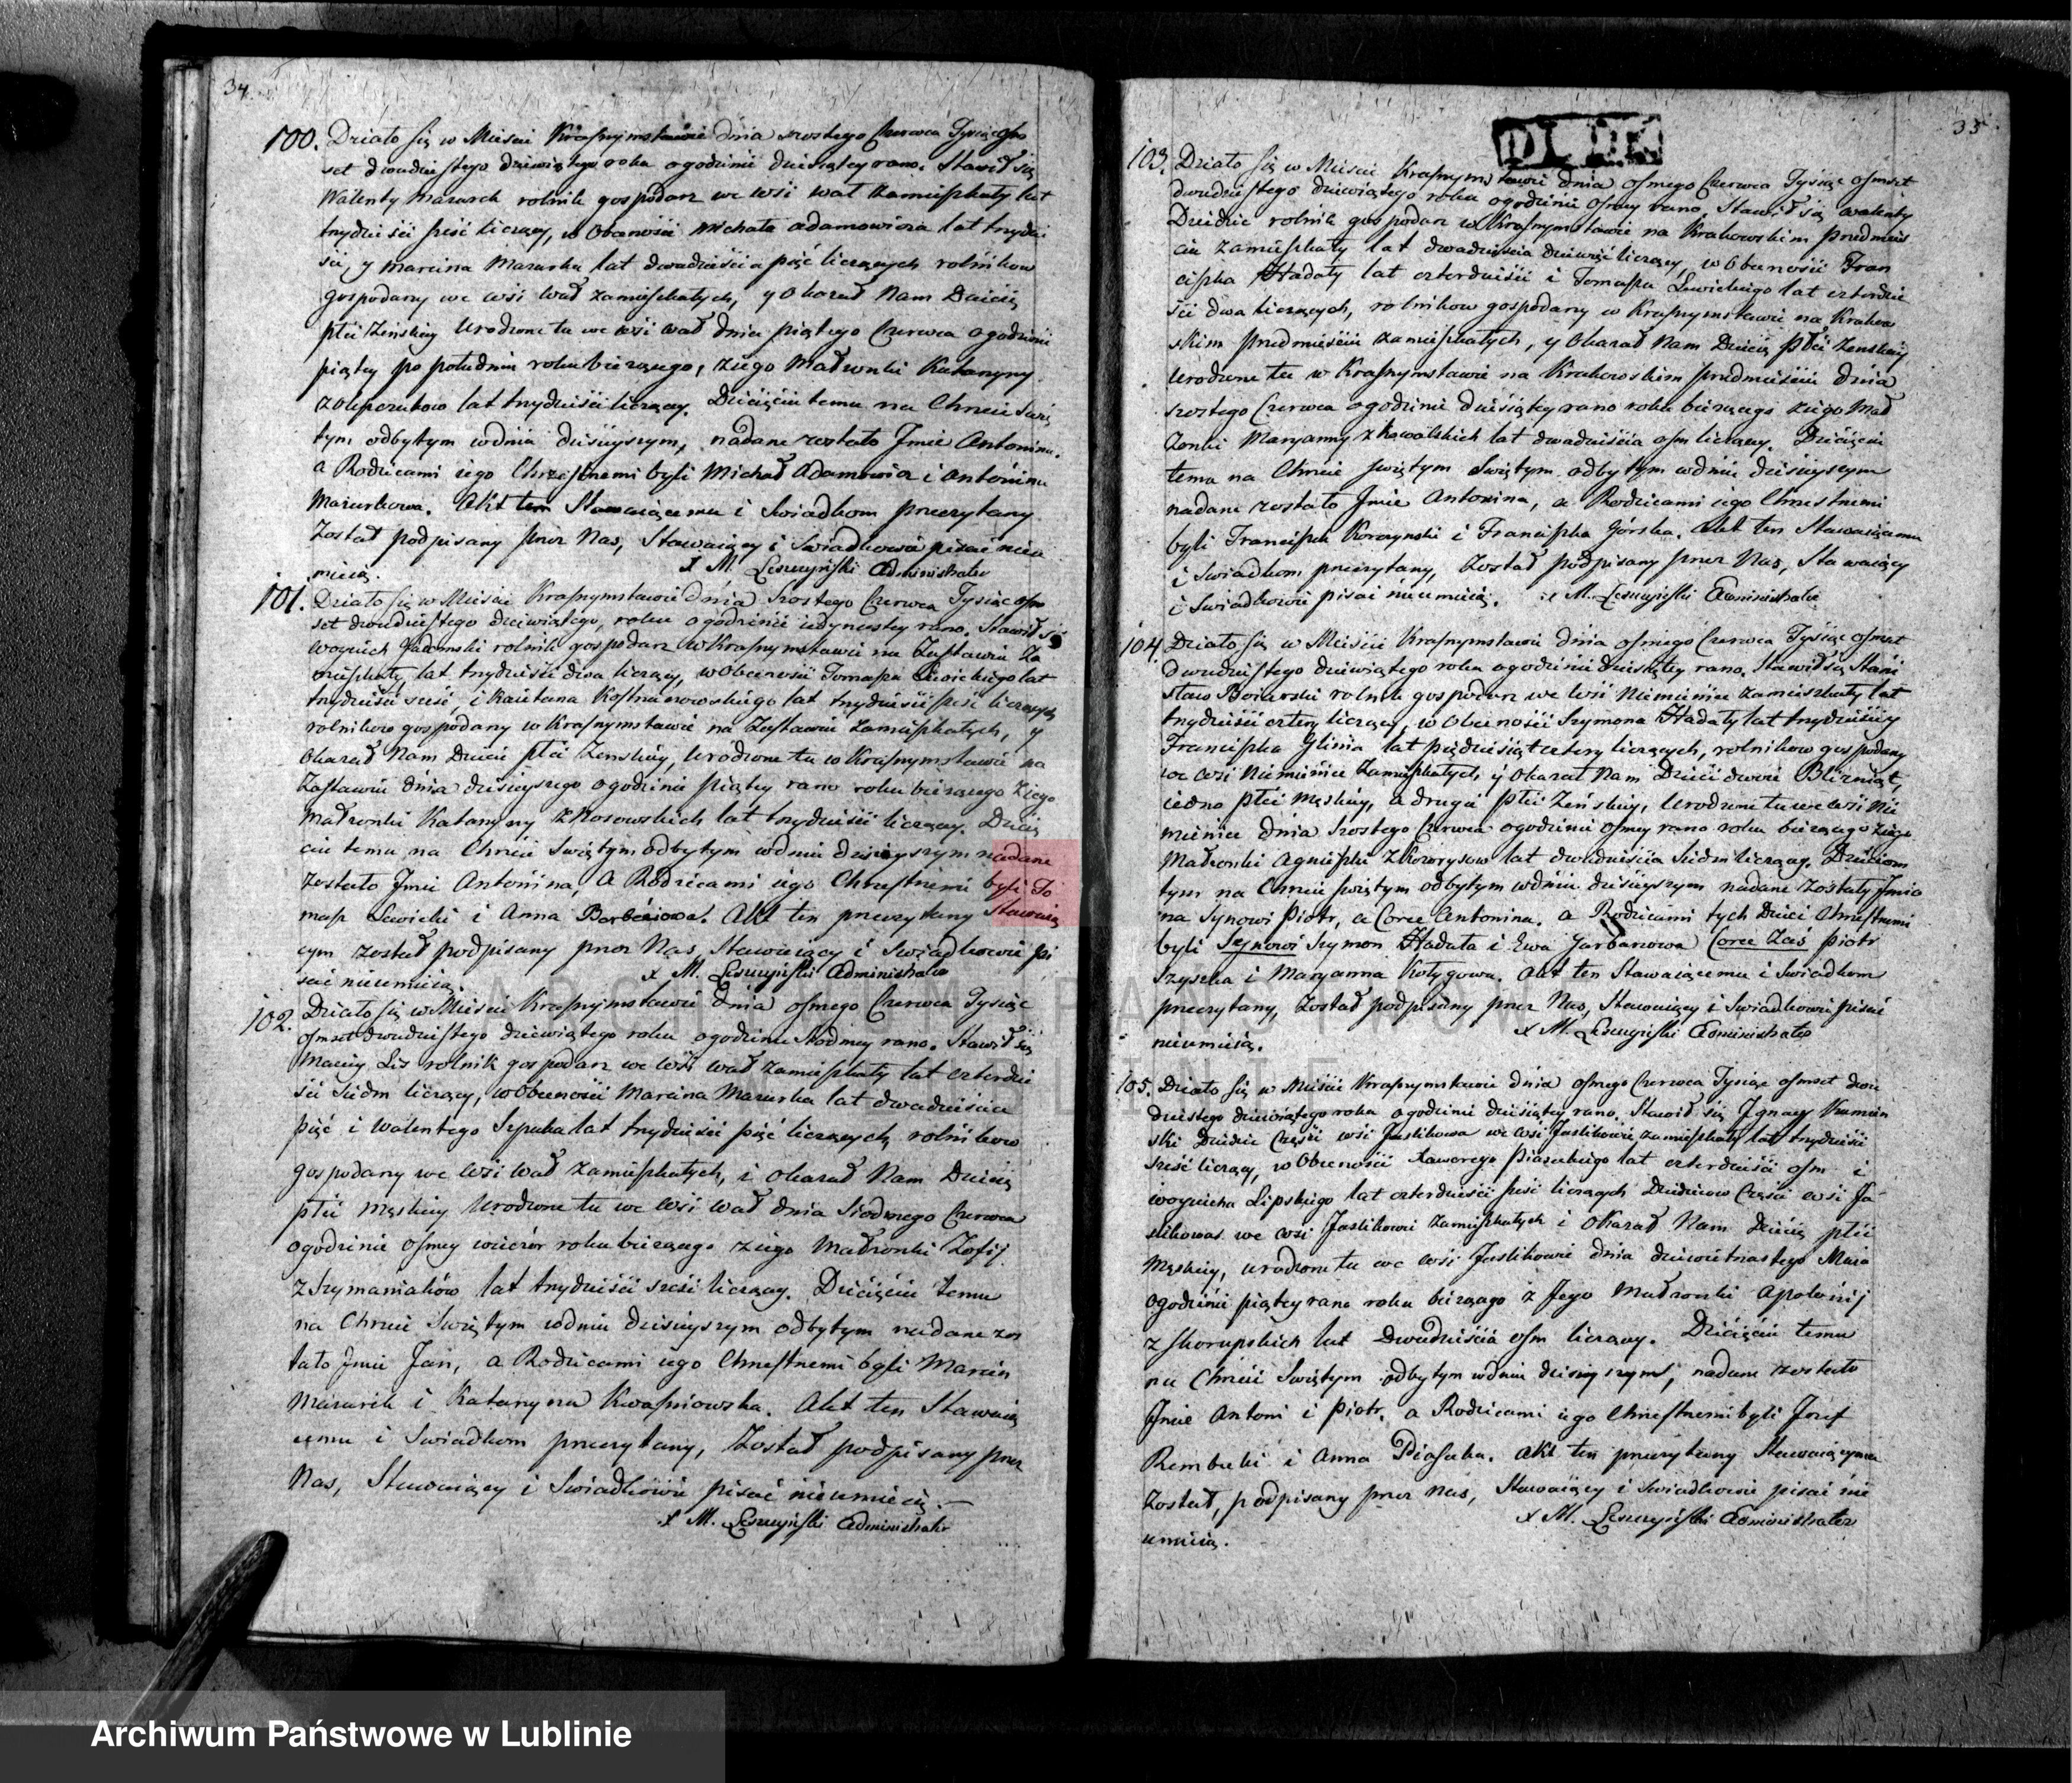 34.
100. Działo się w Mieście Krasnymstawie dnia szostego Czerwca Tysiącośm
set dwudziestego dziewiątego roku o godzinie dziesiątey rano. Stawił się
Walenty Mazurek rolnik gospodarz we wsi Wał zamieszkały lat
trzydzieści sześć liczący, w obecności Michała Adamowicza lat trzydzie
ści, y Marcina Mazurka lat dwadzieścia pięć liczących rolników
gospodarzy we wsi Wał zamieszkałych, y okazał Nam Dziecię
płci Zenskiey urodzone tu we wsi Wał dnia piątego Czerwca o godzinie
piątey po południu roku bieżącego, z iego Małżonki Katarzyny
lat trzydzieści liczącey. Dziecięciu temu na Chrzcie Swię
tym odbytym w dniu dzisieyszym, nadane zostało Imie Antonina,
a Rodzicami iego Chrzestnemi byli Michał Adamowicz i Antonina
Mazurkowa. Akt ten Stawaiącemu i Swiadkom przeczytany
Został podpisany przez Nas, Stawaiący i Swiadkowie pisać nieu
mieią. x M. Leszczyński Administrator
101. Działo się w Mieście Krasnymstawie dnia Szostego Czerwca Tysiąc ośm
set dwudziestego dziewiątego, roku o godzinie iedynastey rano. Stawił się
Woyciech rolnik gospodarz w Krasnymstawie na Zastawiu Za
mieszkały lat trzydzieści dwa liczący, w Obecności Tomasza Sawickiego lat
trzydzieści sześć, i Kaietana lat trzydzieści sześć liczących
rolników gospodarzy w Krasnymstawie na Zastawiu zamieszkałych, y
okazał Nam Dziecie płci Zenskiey, urodzone tu w Krasnymstawie na
Zastawiu dnia dzisieyszego o godzinie piątey rano roku bieżącego z iego
Małżonki Katarzyny z Kosowskich lat trzydzieści liczącey. Dzieię
ciu temu na Chrzcie Swiętym odbytym w dniu dzisieyszym nadane
zostało Imie Antonina, a Rodzicami iego Chrzestnemi byli To
masz Sawicki i Anna. Akt ten przeczytany Stawaią
cym został podpisany przez Nas, Stawaiący i Swiadkowie pi
sać nieumieią. x M. Leszczyński Administrator
102. Działo się w Mieście Krasnymstawie dnia osmego Czerwca Tysiąc
osmset dwudziestego dziewiątego roku o godzinie Siodmey rano. Stawił się
Maciey Lis rolnik gospodarz we wsi Wał zamieszkały lat czterdzie
ści siedm liczący, w Obecności Marcina Mazurka lat dwadzieścia
pięć i Walentego lat trzydzieści pięć liczących, rolników
gospodarzy we wsi Wał zamieszkałych, i okazał Nam Dziecię
płci męskiey urodzone tu we wsi Wał dnia Siodmego Czerwca
o godzinie osmey wieczór roku bieżącego z iego Małżonki Zofij
z Szymaniaków lat trzydzieści sześć liczącey. Dziecięciu temu
na Chrzcie Swiętym w dniu dzisieyszym odbytym nadane zos
tało Imie Jan, a Rodzicami iego Chrzestnemi byli Marcin
Mazurek i Katarzyna Kwaśniowska. Akt ten Stawaią
cemu i Swiadkom przeczytany, Został podpisany przez
Nas, Stawaiący i Swiadkowie pisać nieumieią.
x M. Leszczyński Administrator
35
103. Działo się w Mieście Krasnymstawie dnia osmego Czerwca Tysiąc osmset
dwudziestego dziewiątego roku o godzinie osmey rano. Stawił się Walenty
Dziedzic rolnik gospodarz w Krasnymstawie na Krakowskim przedmieś
ciu zamieszkały lat dwadzieścia dziewięć liczący, w Obecności Fran
ciszka Hadały lat czterdzieści i Tomasza Sawickiego lat czterdzie
ści dwa liczących, rolników gospodarzy w Krasnymstawie na Krakow
skim przedmieściu zamieszkałych, y okazał Nam Dziecię Płci Zenskiey
urodzone tu w Krasnymstawie na Krakowskim przedmieściu dnia
szostego Czerwca o godzinie dziesiątey rano roku bieżącego z iego Mał
żonki Maryanny z Kowalskich lat dwadzieścia osm liczącey. Dziecięciu
temu na Chrzcie swiętym Swiętym odbytym w dniu dzisieyszym
nadane zostało Imie Antonina, a Rodzicami iego Chrzestnemi
byli Franciszek Korczynski i Franciszka Górska. Akt ten Stawaiącemu
i Swiadkom przeczytany, Został podpisany przez Nas, Stawaiący
i Swiadkowie pisać nieumieią. x M. Leszczyński Administrator
104. Działo się w Mieście Krasnymstawie dnia osmego Czerwca Tysiąc osmset
dwudziestego dziewiątego roku o godzinie dziesiątey rano. Stawił się Stani
sław rolnik gospodarz we wsi Niemienice zamieszkały lat
trzydzieści cztery liczący, w Obecności Szymona Hadały lat trzydzieści y
Franciszka Glinia lat pięćdziesiąt cztery liczących, rolników gospodarzy
we wsi Niemienice zamieszkałych y okazał Nam Dzieci dwoie Bliźniąt,
iedno płci męskiey, a drugie płci Zeńskiey, urodzone tu we wsi Nie
mienice dnia Szostego Czerwca o godzinie osmey rano roku bieżącego z iego
Małżonki Agnieszki lat dwadzieścia siedm liczącey. Dzieciom
tym na Chrzcie swiętym odbytym w dniu dzisieyszym nadane zostały Imia
na Synowi Piotr, a Corce Antonina. a Rodzicami tych Dzieci Chrzestnemi
byli Synowi Szymon Hadała i Ewa Garbarzowa Corce Zaś Piotr
Szyszka i Maryanna Kołtygowa. Akt ten Stawaiącemu i Swiadkom
przeczytany, Został podpisany przez Nas, Stawaiący i Swiadkowie pisać
nieumieią. x M. Leszczyński Administrator
105. Działo się w Mieście Krasnymstawie dnia osmego Czerwca Tysiąc osmset dwu
dziestego dziewiątego roku o godzinie dziesiątey rano. Stawił się Ignacy Krumin
ski Dziedzic Części wsi Jaslikowa we wsi Jaslikowie zamieszkały lat trzydzieści
sześć liczący, w Obecności Xawerego Piaseckiego lat czterdzieści osm i
Woyciecha Lipskiego lat czterdzieści sześć liczących Dziedziców Części wsi Ja
slikowa we wsi Jaslikowie zamieszkałych i okazał Nam Dziecię płci
męskiey, urodzone tu we wsi Jaslikowie dnia dziewietnastego Maia
o godzinie piątey rano roku bieżącego z Jego Małżonki Apolonij
z Skorupskich lat Dwadzieścia osm liczącey. Dziecięciu temu
na Chrzcie Swiętym odbytym w dniu dzisieyszym, nadane zostało
Imie Antoni i Piotr, a Rodzicami iego Chrzestnemi byli Jozef
Rembecki i Anna Piasecka. Akt ten przeczytany Stawaiącym
Został, podpisany przez Nas, Stawaiący i Swiadkowie pisać nie
umieią. x M. Leszczyński Administrator
Archiwum Państwowe w Lublinie